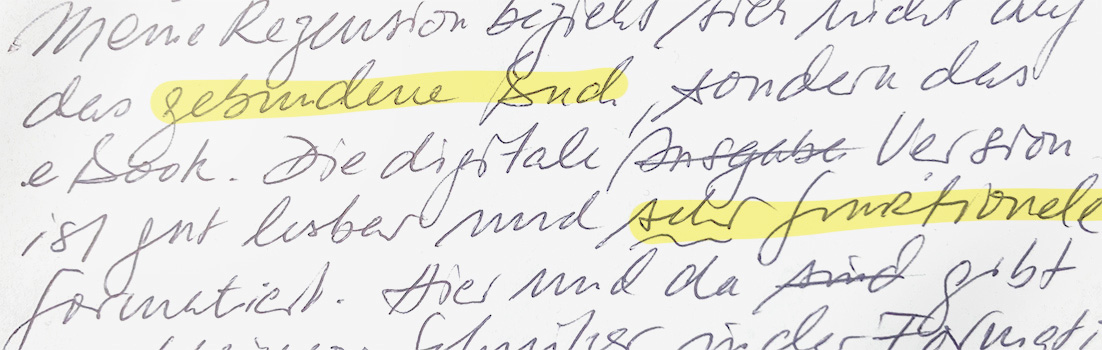 Meine Rezension bezieht sich nicht auf
das gebundene Buch, sondern das
eBook. Die digitale Ausgabe Version
ist gut lesbar und sehr funktionele
formatiert. Hier und da sind gibt
in der Formati